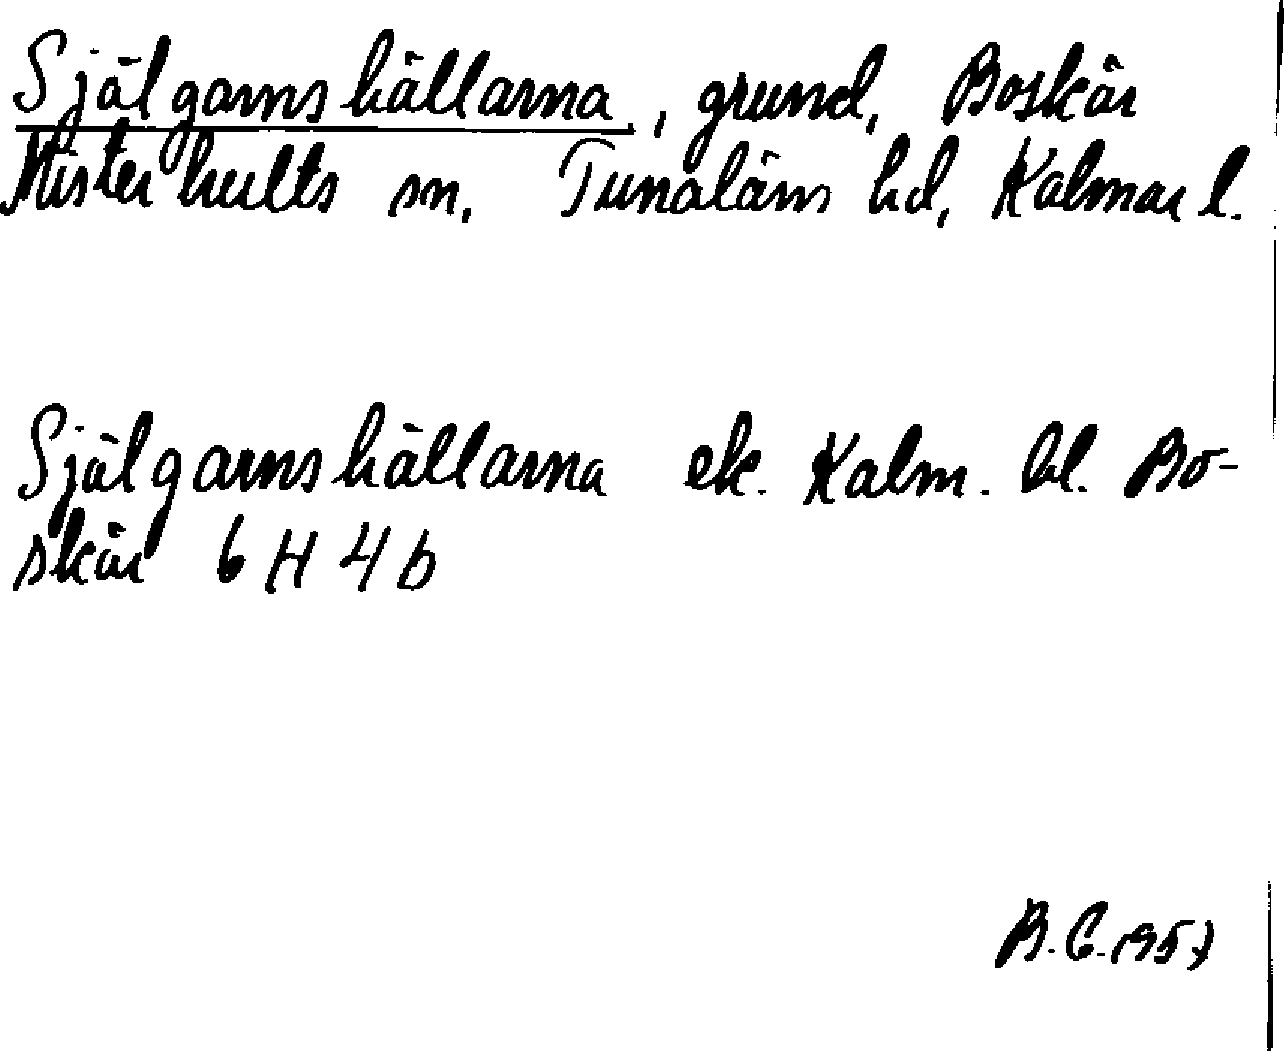 Själgarnshällarna, grund, Boskär
Misterhults sn, Tunaläns hd, Kalmar l.
Själgarnshällarna ek. Kalm. bl. Bo-
skär 6 H 4 b
B. C. 1957